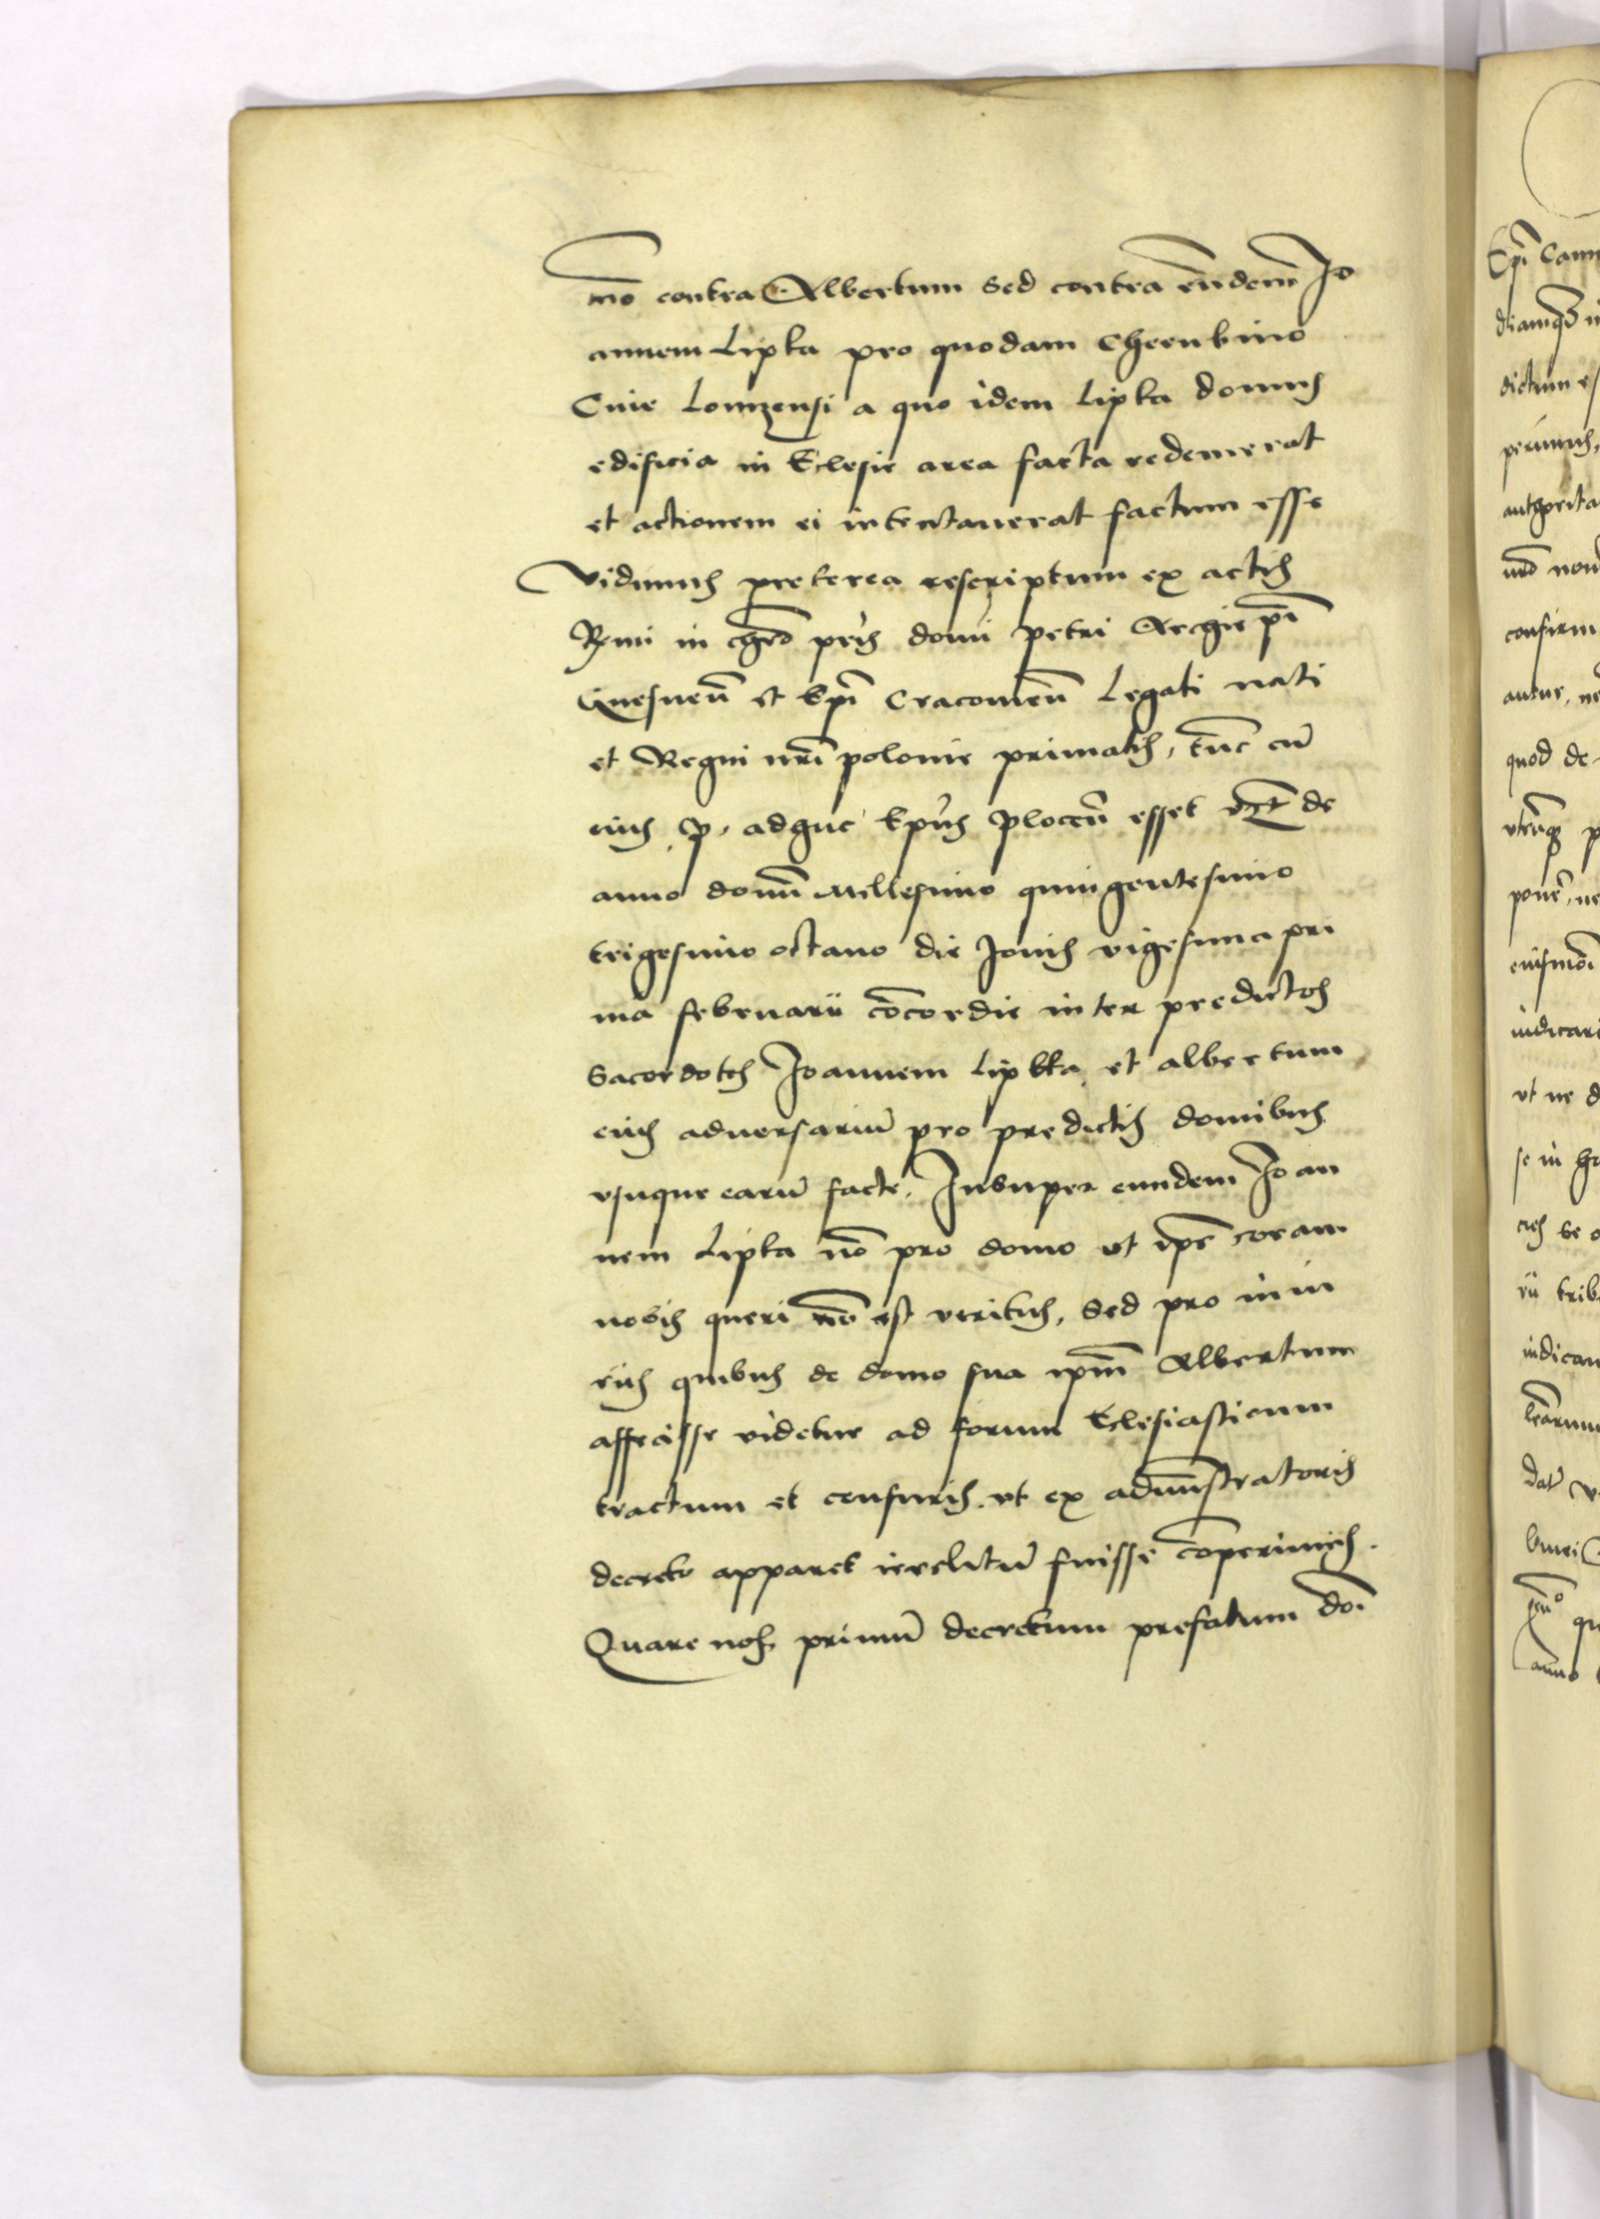 no͞ contra Albertum Sed contra eun̄dem Jo
annem Lipka pro quodam Cherubino
Ciue Lomzensi a quo idem Lipka domus
edificia in Eclesie area facta redemerat
et actionem ei intentauerat factum esse
Vidimus preterea rescriptum ex actis
Rm̄i in chr̄o pr̄is domi Petri Archiep̄i
Gnesnen̄ et Ep̄i Cracouien̄ Legati nati
et Regni nr̄i polonie primatis, tun̄c cū
eius p. adhuc Ep̄us Plocen̄ esset de
anno domi̅ Millesimo quingentesimo
trigesimo octauo die Jouis vigesima pri
ma februarii co̅cordie inter predictos
Sacerdotes Joannem Lipkka et albertum
eius aduersariu̅ pro predictis domibus
vsuque earu̅ facte. Insuper eundem Joan
nem Lipka no̅ pro domo vt ip̄e coram
nobis queri no̅ est veritus, Sed pro iniu
riis quibus de domo sua ip̄m Albertum
affecisse videtur ad forum Eclesiasticum
tractum et censuris. vt ex admi̅stratoris
decreto apparet irrelitu̅ fuisse co̅perimus.
Quare nos primu̅ decretum prefatum do̅i
Ep̄i
dictum
perimus,
confirm
quod de
vt ne d
se in
anno